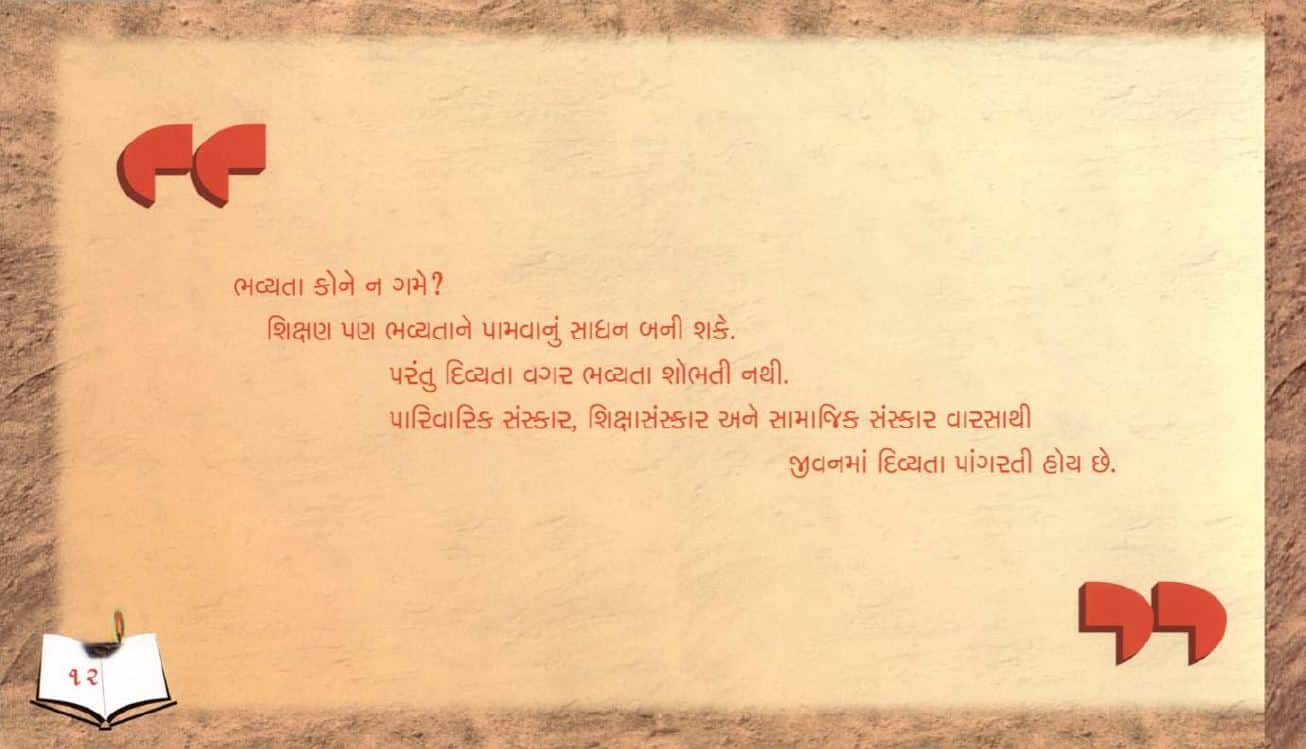 ભવ્યતા કોને ન ગમે?
શિક્ષણ પણ ભવ્યતાને પામવાનું સાધન બની શકે.
પરંતુ દિવ્યતા વગર ભવ્યતા શોભતી નથી.
પારિવારિક સંસ્કાર, શિક્ષાસંસ્કાર અને સામાજિક સંસ્કાર વારસાથી
જીવનમાં દિવ્યતા પાંગરતી હોય છે.
૧૨